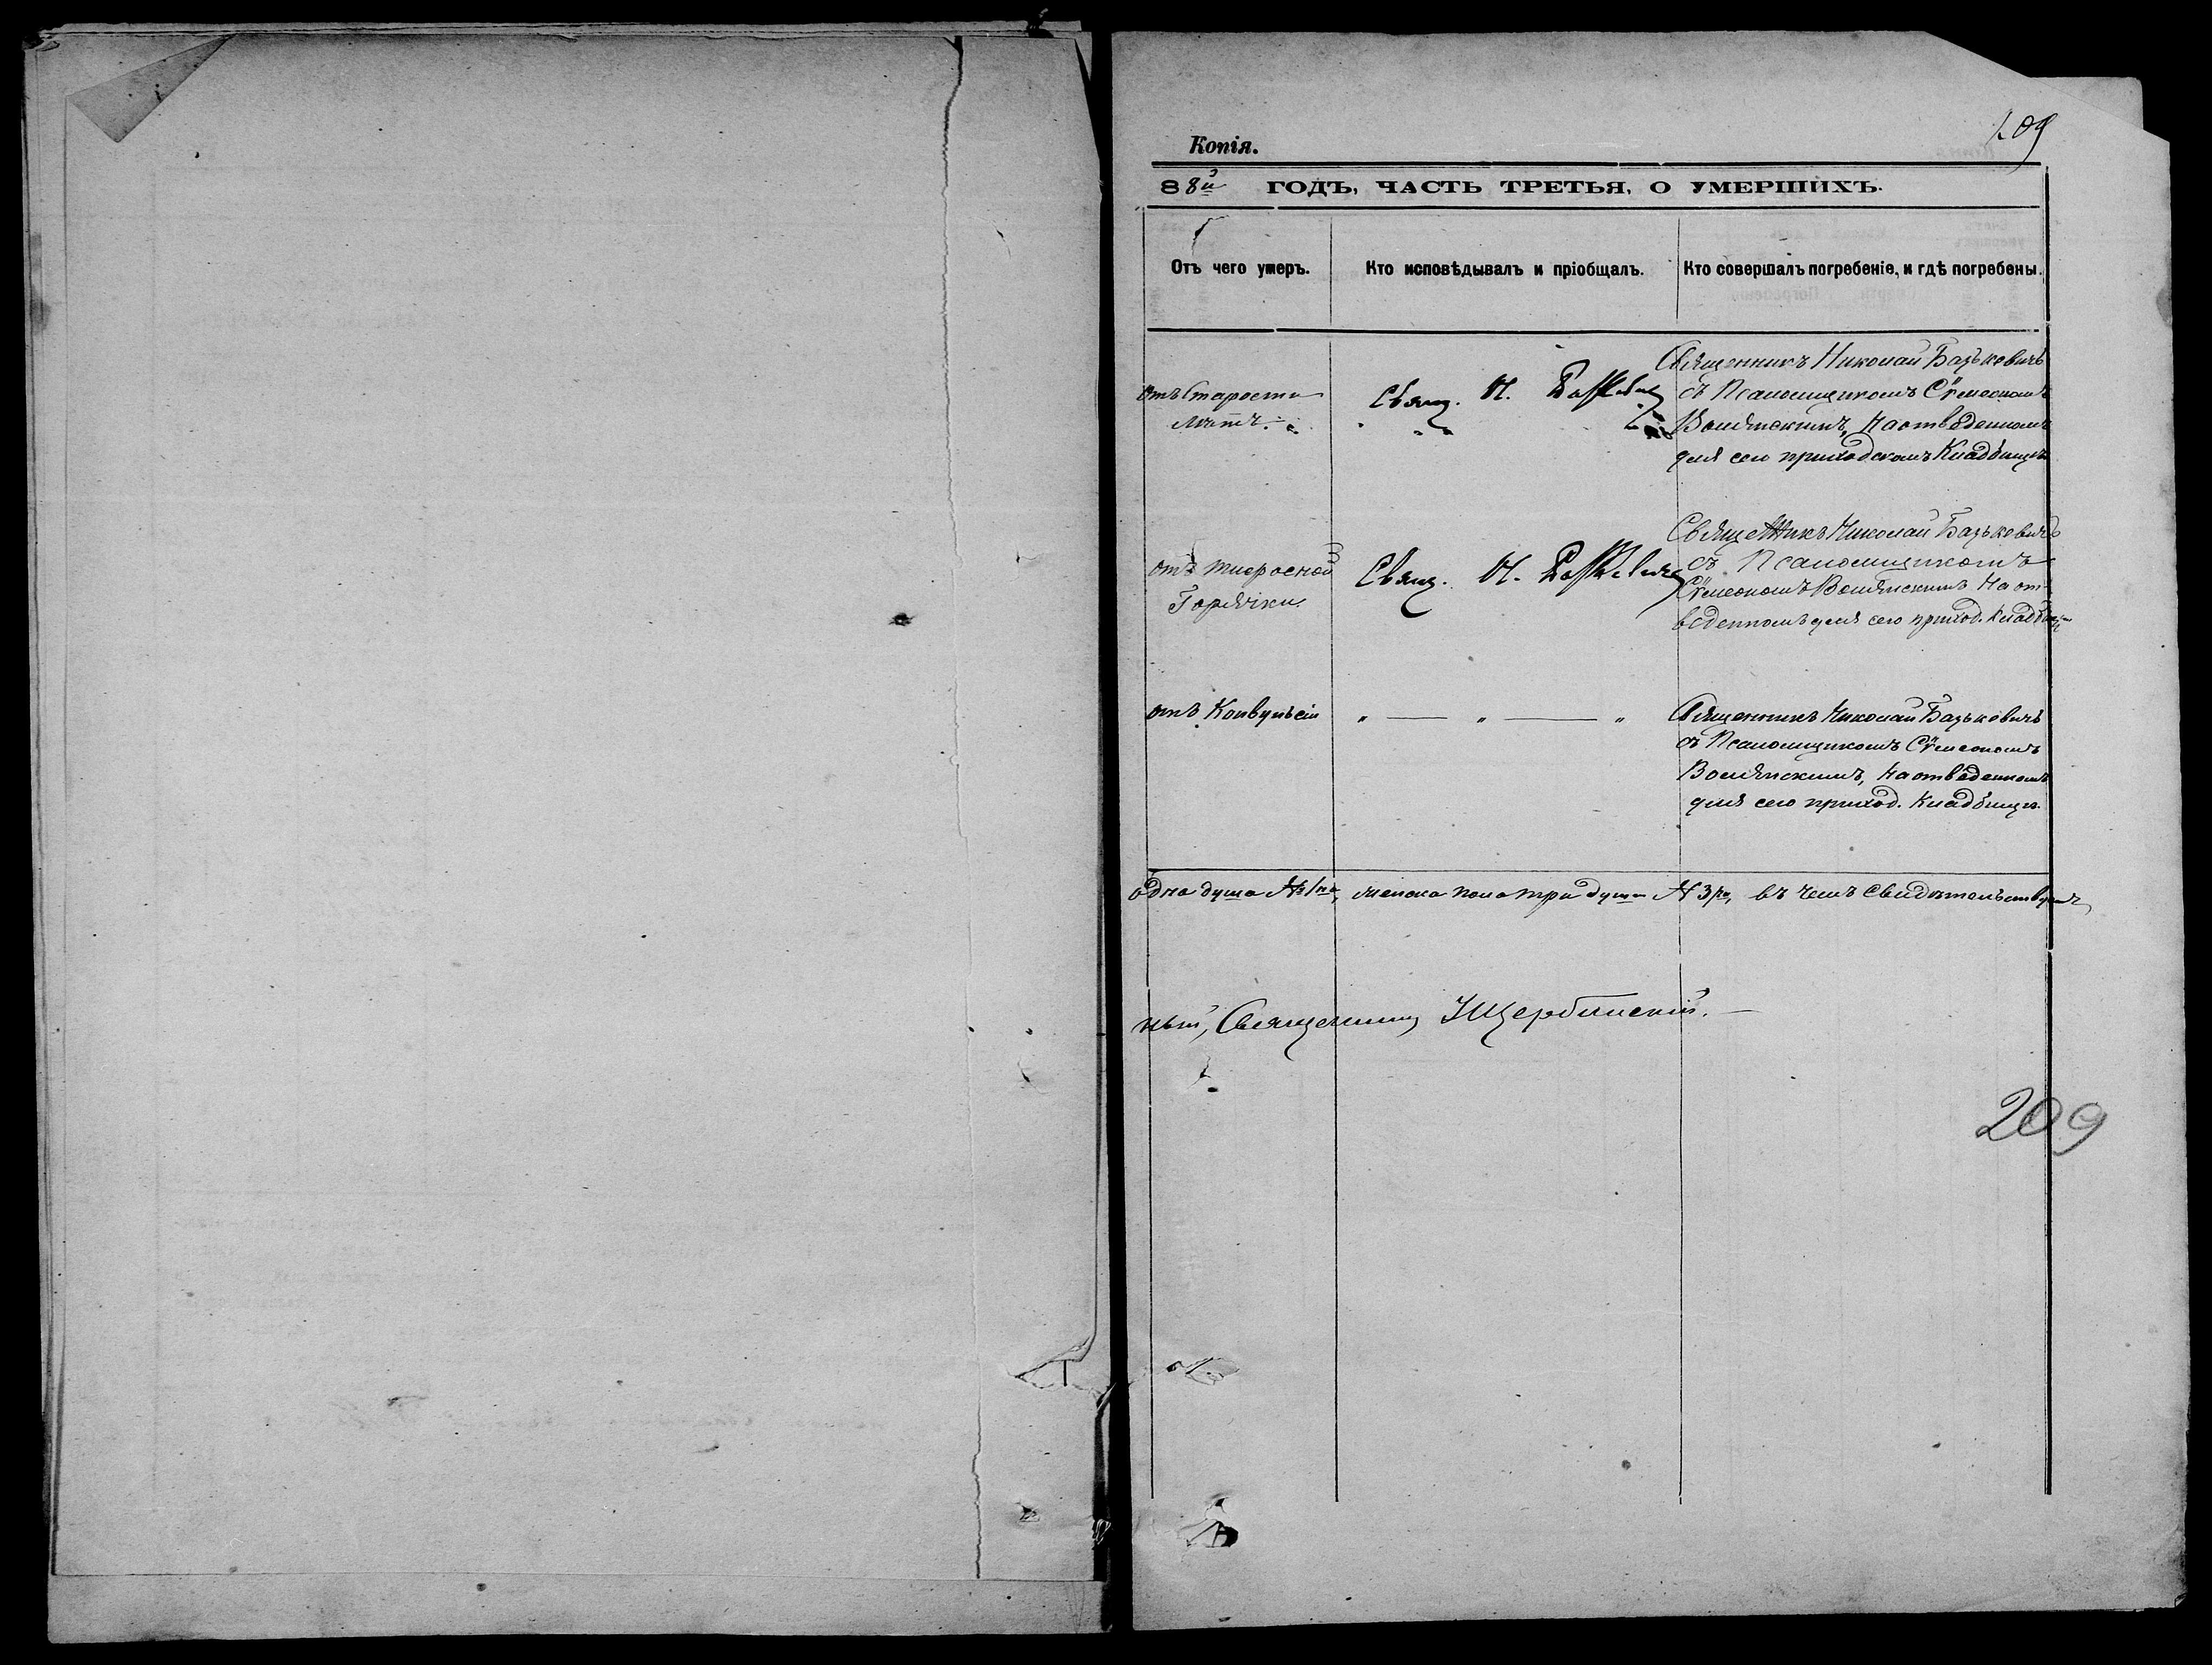 209
Копія.
88й ГОДЪ, ЧАСТЬ ТРЕТЬЯ, О УМЕРШИХЪ.
Отъ чего умеръ.
Кто исповѣдывалъ и пріобщалъ.
Кто совершалъ погребеніе, и гдѣ погребены.
отъ Старости
лѣтъ.
Свящ. Н.
Священникъ Николай Базькевичъ
съ Псаломщикомъ Сѵмеономъ
на отведенномъ
для сего приходскомъ Кладбищѣ
отъ тифозной
Горячки
Свящ. Н.
Священникъ Николай Базькевичъ
съ Псаломщикомъ
Сѵмеономъ на от-
веденномъ для сего приход. Кладбищѣ
отъ Конвульсіи
" — " — "
Священникъ Николай Базькевичъ
съ Псаломщикомъ Сѵмеономъ
на отведенномъ
для сего приход. Кладбищѣ.
одна душа № 1на, женска пола три души № 3ри, въ чемъ свидѣтельствуемъ
ный, Священникъ І Щербинскій. —
209